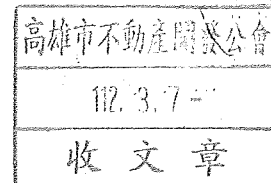 高雄市不動產開發公會
112. 3. 7
收文章